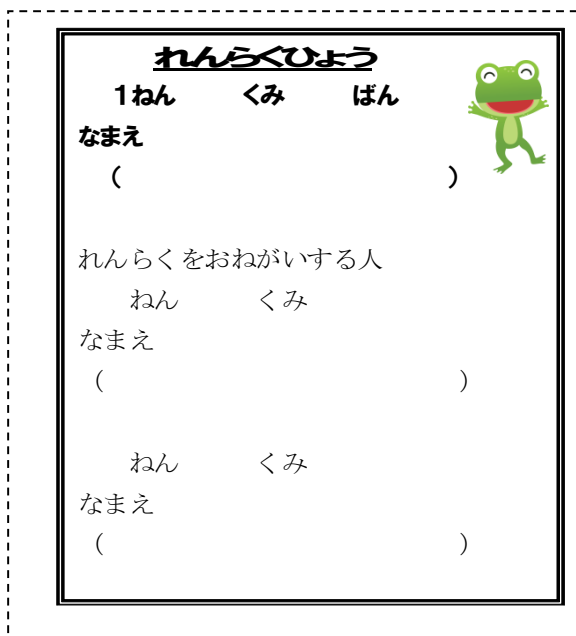 れんらくひょう
1ねん　　くみ　　ばん
なまえ
（　　　　　　　　　　　　）
れんらくをおねがいする人
ねん　　くみ
なまえ
（　　　　　　　　　　　　）
ねん　　くみ
なまえ
（　　　　　　　　　　　　）